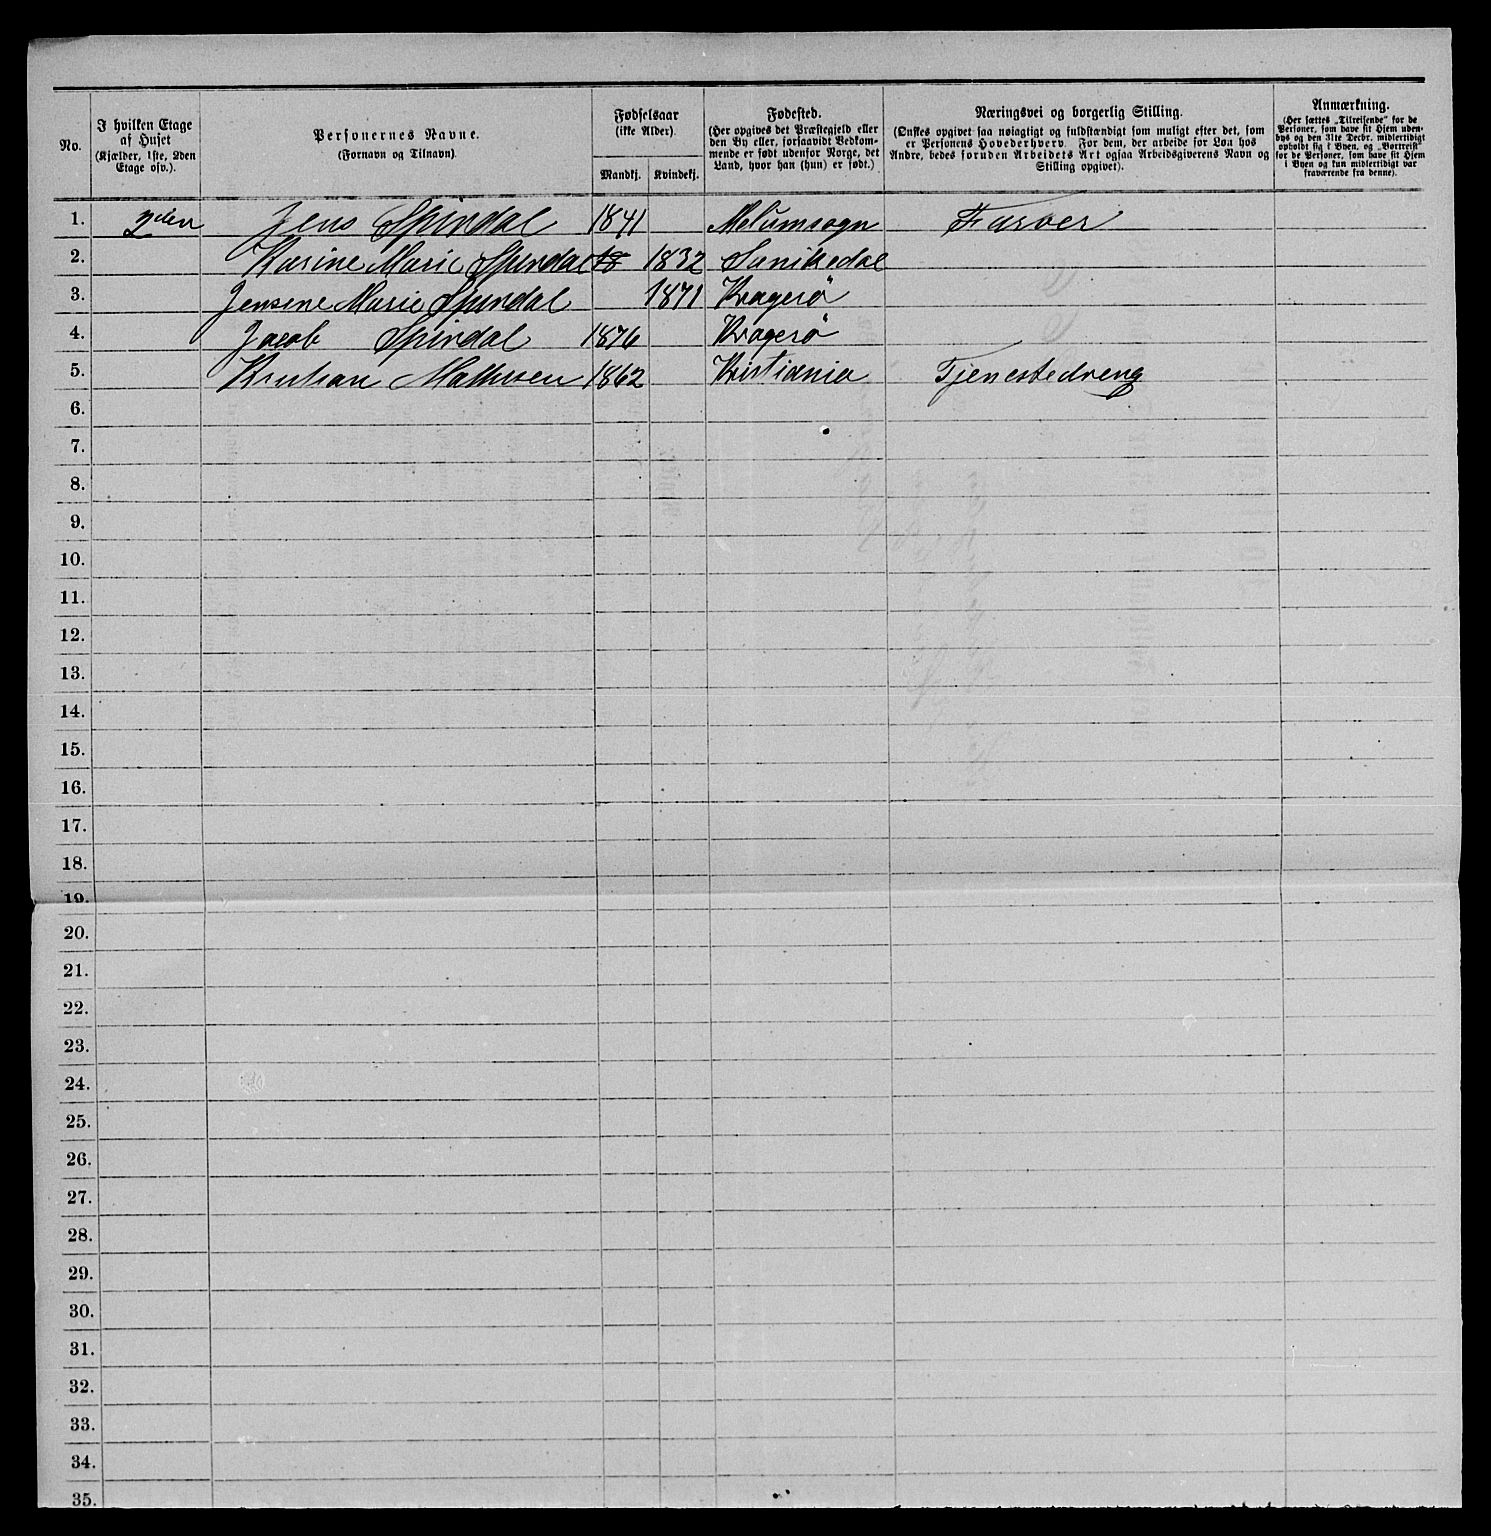 No.
I hvilken Etage af Huset (Kjælder, 1ste, 2den Etage osv.).
Personernes Navne. (Fornavn og Tilnavn)
Fødselsaar (ikke Alder)
Mandkj. Kvindekj.
Fødested. (Her opgives det Præstegjeld eller den By eller, forsaavidt Vedkommende er født udenfor Norge, det Land, hvor han (hun) er født.)
Næringsvei og borgerlig Stilling. (Ønskes opgivet saa nøiagtigt og fuldstændigt som muligt efter det, som er Personens Hovederhverv. For dem, der arbeide for Løn hos Andre, bedes foruden Arbeidets Art ogsaa Arbeidsgiverens Navn og Stilling opgivet).
Anmærkning. (Her sættes „Tilreisende" for de Personer, som have sit Hjem udenbys og den 31te Decbr. midlertidigt opholdt sig i Byen, og „Bortreist" for de Personer, som have sit Hjem i Byen og kun midlertidigt var fraværende fra denne).
1. 2den Jens Spirdal 1841 Melumsogn Farver
2. Karine Marie Spirdal 18 1832 Sanikedal
3. Jensine Marie Spirdal 1871 Kragerø
4. Jacob Spirdal 1876 Kragerø
5. Kristian Mathisen 1862 Kristiania Tjenestedreng
6.
7.
8.
9.
10.
11.
12.
13.
14.
15.
16.
17.
18.
19.
20.
21.
22.
23.
24.
25.
26.
27.
28.
29.
30.
31.
32.
33.
34.
35.